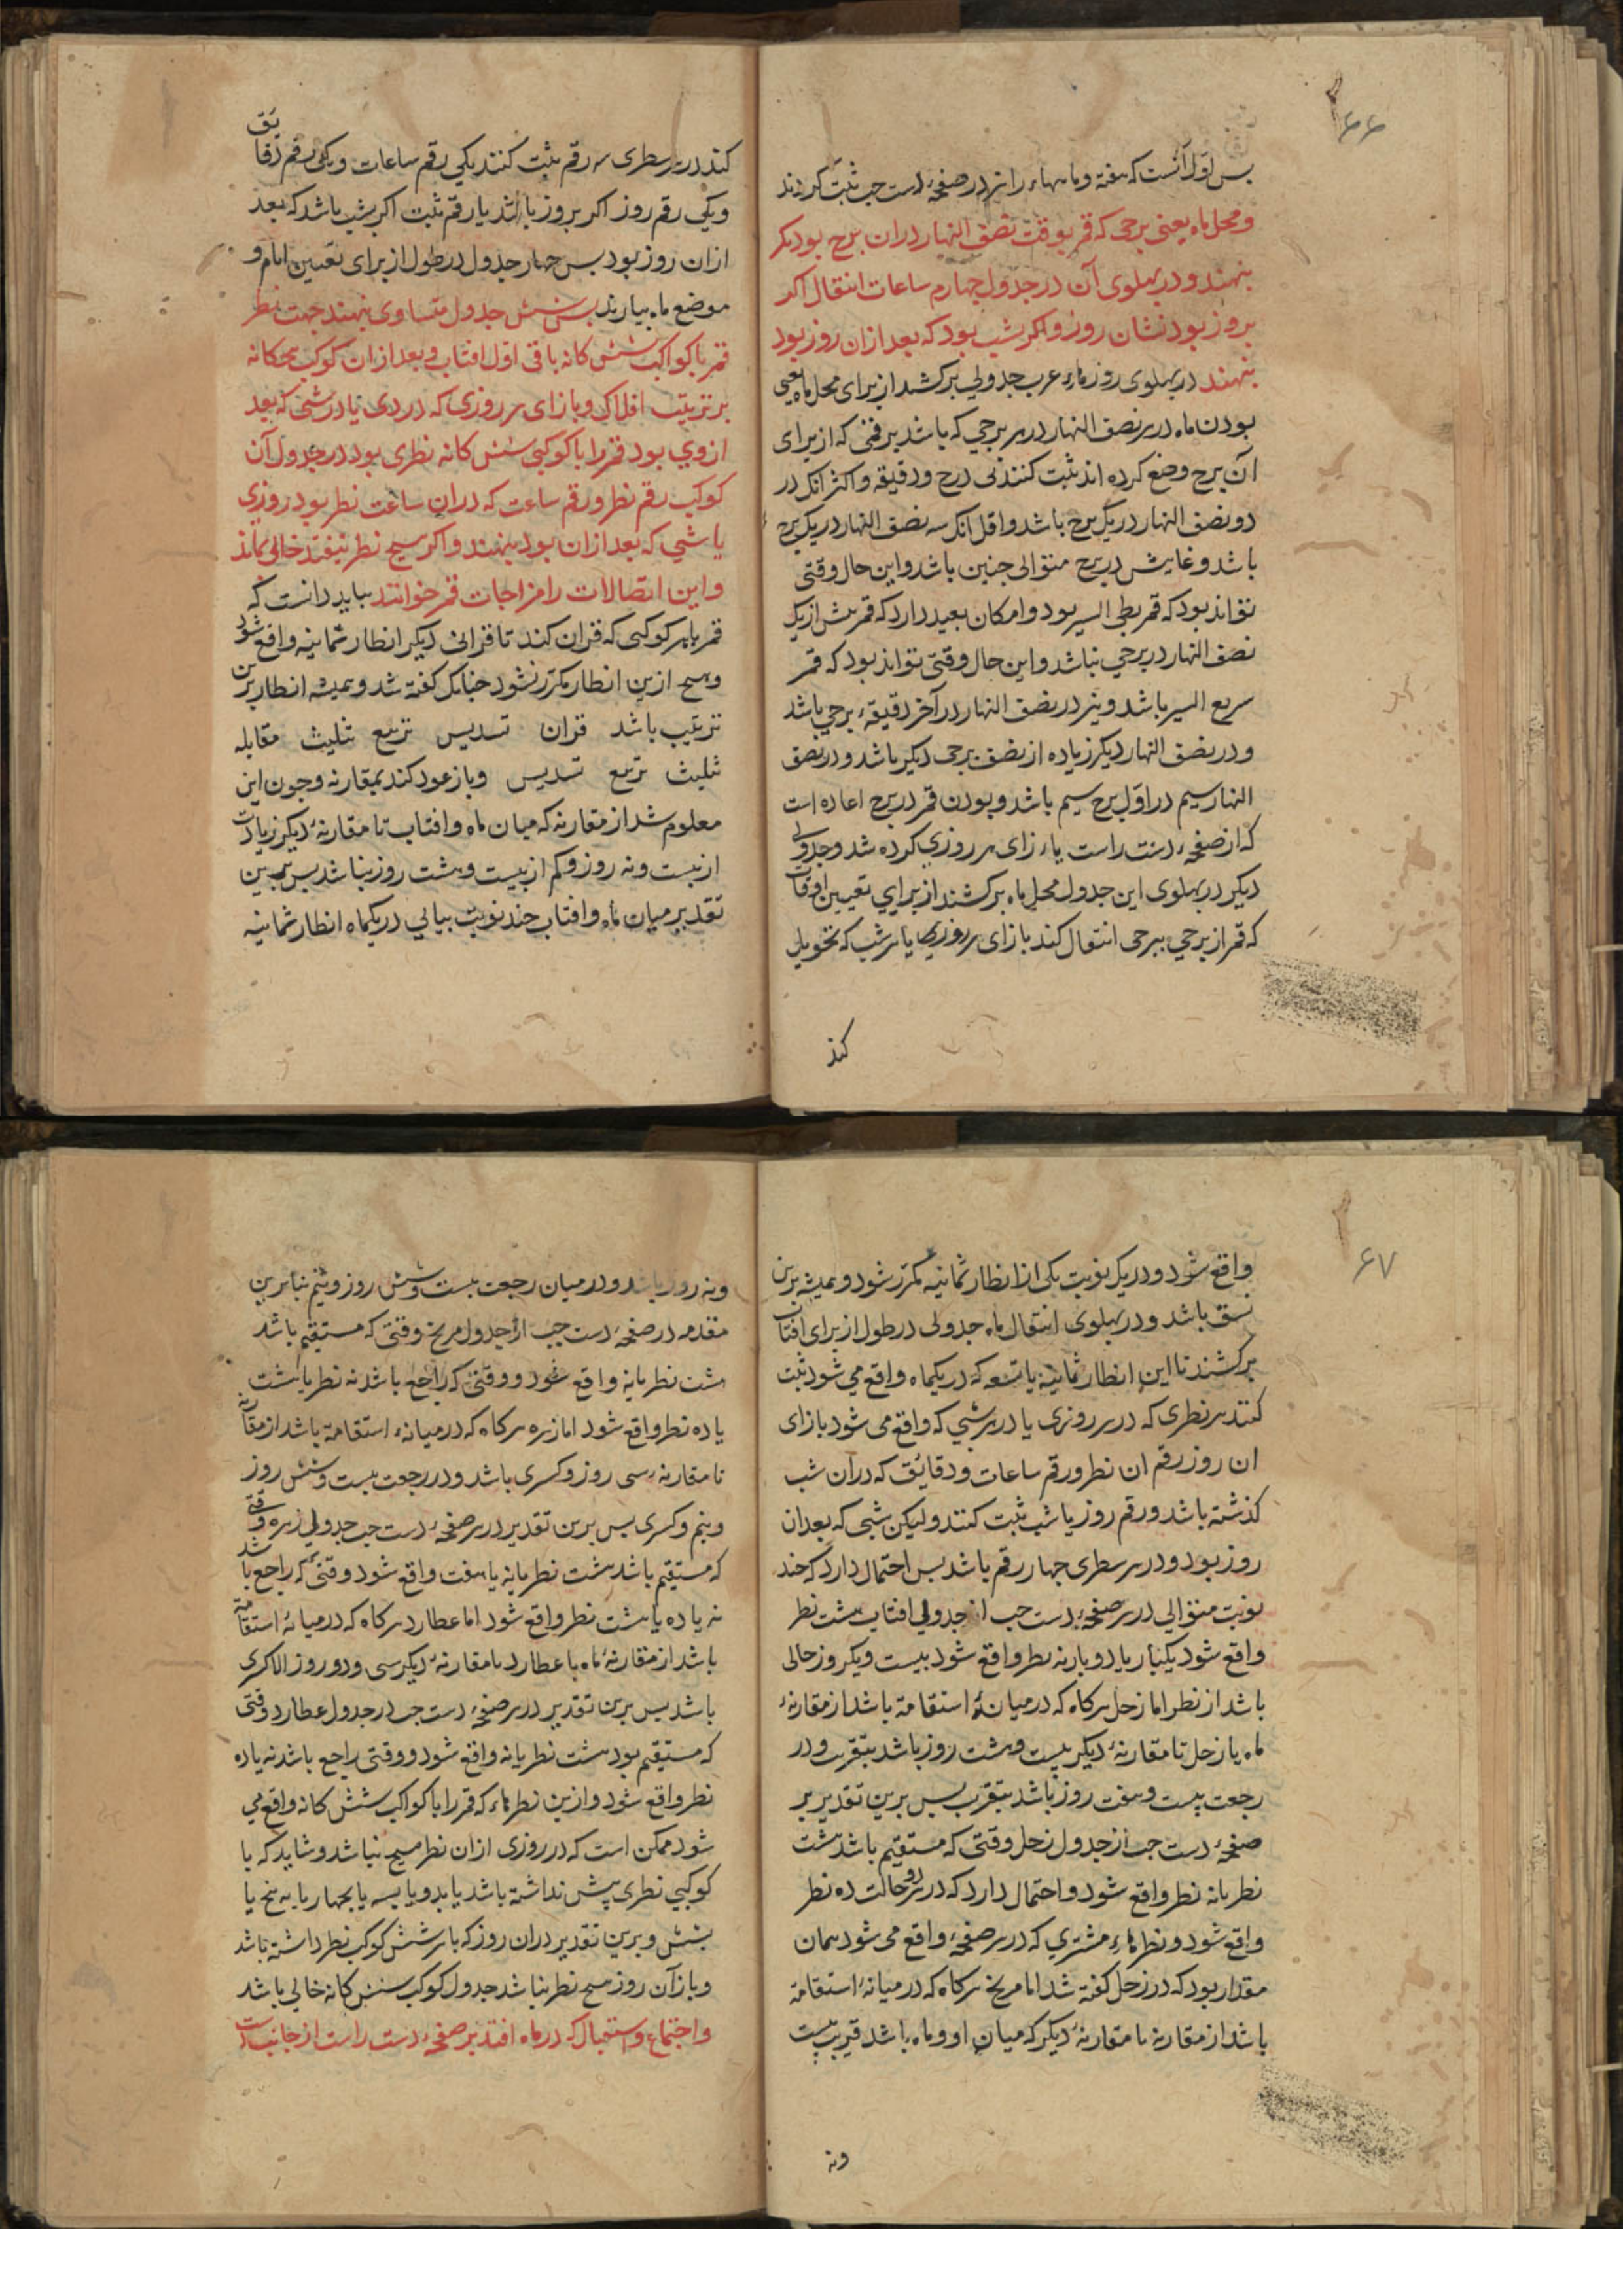 ۶۶
بس اول آنست که هفته و ماهها را نیز در صفحهٔ دست چب ثبت کردند
و محل ماه یعنی برجی که قمر بوقت نصف النهار در ان برج بود
بنهند و در بهلوی آن در جدول چهارم ساعات انتقال اکر
بروز بود نشان روز و اکر شب بود که بعد از ان روز بود
بنهند در بهلوی روزهاء عرب جدولی برکشند از برای محل ماه یعنی
بودن ماه در هر نصف النهار در هر برجی که باشد برقمی که از برای
آن برج وضع کرده اند ثبت کنند بی درج و دقیقه و اکثر انک در
دو نصف النهار در یک برج باشد و اقل انک سه نصف النهار در یک برج
باشد و غایتش در برج متوالی جنین باشد و این حال وقتی
تواند بود که قمر بطی السیر بود و امکان بعید دارد که قمر بیش از یک
نصف النهار در برجی نباشد و این حال وقتی تواند بود که قمر
سریع السیر باشد و نیز در نصف النهار در آخر دقیقهٔ برجی باشد
و در نصف النهار دیکر زیاده از نصف برجی دیکر باشد و در نصف
النهار سیم در اول برج سیم باشد و بودن قمر در برج اعاده است
که از صفحهٔ دست راست بازای هر روزی کرده شد و جدولی
دیکر در بهلوی این جدول محل ماه برکشند از برای تعیین اوقات
که قمر از برجی ببرجی انتقال کند بازای هر روزی یا هر شب که تحویل
کند
کند در هر سطری سه رقم ثبت کنند یکی رقم ساعات و یکی رقم دقایق
و یکی رقم روز اکر بروز باشد یا رقم شب اکر بشب باشد که بعد
ازان روز بود بس چهار جدول در طول از برای تعیین ایام و
موضع ماه بیارند بس شش جدول متساوی بنهند جهت نظر
قمر با کواکب شش کانه باقی اول افتاب و بعد ازان کوکب بنجکانه
بر ترتیب افلاک و بازای هر روزی که در وی یا در شبی که بعد
از وی بود قمر را با کوکبی شش کانه نظری بود در جدول آن
کوکب رقم نظر و رقم ساعت که دران ساعت نظر بود روزی
یا شبی که بعد ازان بود بنهند و اکر هیچ نظر نیفتد خالی بماند
و این اتصالات را مزاجات قمر خوانند بباید دانست که
قمر با هر کوکبی که قران کند تا قرانی دیکر انظار ثمانیه واقع شود
و هیچ ازین انظار مکرر نشود جنانک کفته شد و همیشه انظار برین
ترتیب باشد قران تسدیس تربیع تثلیث مقابله
تثلیث تربیع تسدیس و باز عود کند بمقارنه و جون این
معلوم شد از مقارنه که میان ماه و افتاب تا مقارنهٔ دیکر زیادت
از بیست و نه روز و کم از بیست و هشت روز نباشد بس برین
تقدیر میان ماه و افتاب چند نوبت بیابی در یکماه انظار ثمانیه
۶۷
واقع شود و در یک نوبت یکی از انظار ثمانیه مکرر شود و همیشه برین
نسق باشد و در بهلوی انتقال ماه جدولی در طول از برای افتاب
برکشند تا این انظار ثمانیه یا تسعه که در یکماه واقع می شود ثبت
کنند هر نظری که در هر روزی یا در هر شبی که واقع می شود بازای
ان روز رقم ان نظر و رقم ساعات و دقائق که در آن شب
کذشته باشد و رقم روز یا شب ثبت کنند ولیکن شبی که بعد ان
روز بود و در هر سطری جهار رقم باشد بس احتمال دارد که جند
نوبت متوالی در هر صفحهٔ دست جب از جدولی افتاب هشت نظر
واقع شود یکبار یا دو بار نه نظر واقع شود بیست و یکروز خالی
باشد از نظر اما زحل هرکاه که در میانهٔ استقامة باشد از مقارنهٔ
ماه با زحل تا مقارنهٔ دیکر بیست و هشت روز باشد بتقریب و در
رجعت بیست و هفت روز باشد بتقریب بس برین تقدیر بر
صفحهٔ دست جب از جدول زحل وقتی که مستقیم باشد هشت
نظر یا نه نظر واقع شود و احتمال دارد که در هر دو حالت ده نظر
واقع شود و نظرهاء مشتری که در هر صفحهٔ واقع می شود همان
مقدار بود که در زحل کفته شد اما مریخ هرکاه که در میانهٔ استقامة
باشد از مقارنه تا مقارنهٔ دیکر که میان او و ماه باشد قریب بیست
ونه
ونه روز باشد و در میان رجعت بیست و شش روز و نیم بنابرین
مقدمه در صفحهٔ دست جب از جدول مریخ وقتی که مستقیم باشد
هشت نظر یا نه واقع شود و وقتی که راجع باشد نه نظر یا هشت
یا ده نظر واقع شود اما زهره هرکاه که در میانهٔ استقامة باشد از مقارنه
تا مقارنهٔ سی روز و کسری باشد و در رجعت بیست و شش روز
و نیم و کسری بس برین تقدیر در هر صفحهٔ دست جب جدولی زهره وقتی
که مستقیم باشد هشت نظر یا نه یا هفت واقع شود و وقتی که راجع باشد
نه یا ده یا هشت نظر واقع شود اما عطارد هرکاه که در میانهٔ استقامة
باشد از مقارنهٔ ماه با عطارد تا مقارنهٔ دیکر سی و دو روز الا کسری
باشد بس برین تقدیر در هر صفحهٔ دست جب در جدول عطارد وقتی
که مستقیم بود هشت نظر یا نه واقع شود و وقتی راجع باشد نه یا ده
نظر واقع شود و ازین نظرهاء که قمر را با کواکب شش کانه واقع می
شود ممکن است که در روزی ازان نظر هیچ نباشد و شاید که با
کوکبی نظری بیش نداشته باشد یا بدو یا بسه یا بجهار یا به بنج یا
بشش و برین تقدیر دران روز که با هر شش کوکب نظر داشته باشد
و باز آن روز هیچ نظر نباشد جدول کوکب شش کانه خالی باشد
و اجتماع و استقبال که در ماه افتد بر صفحهٔ دست راست از جانب